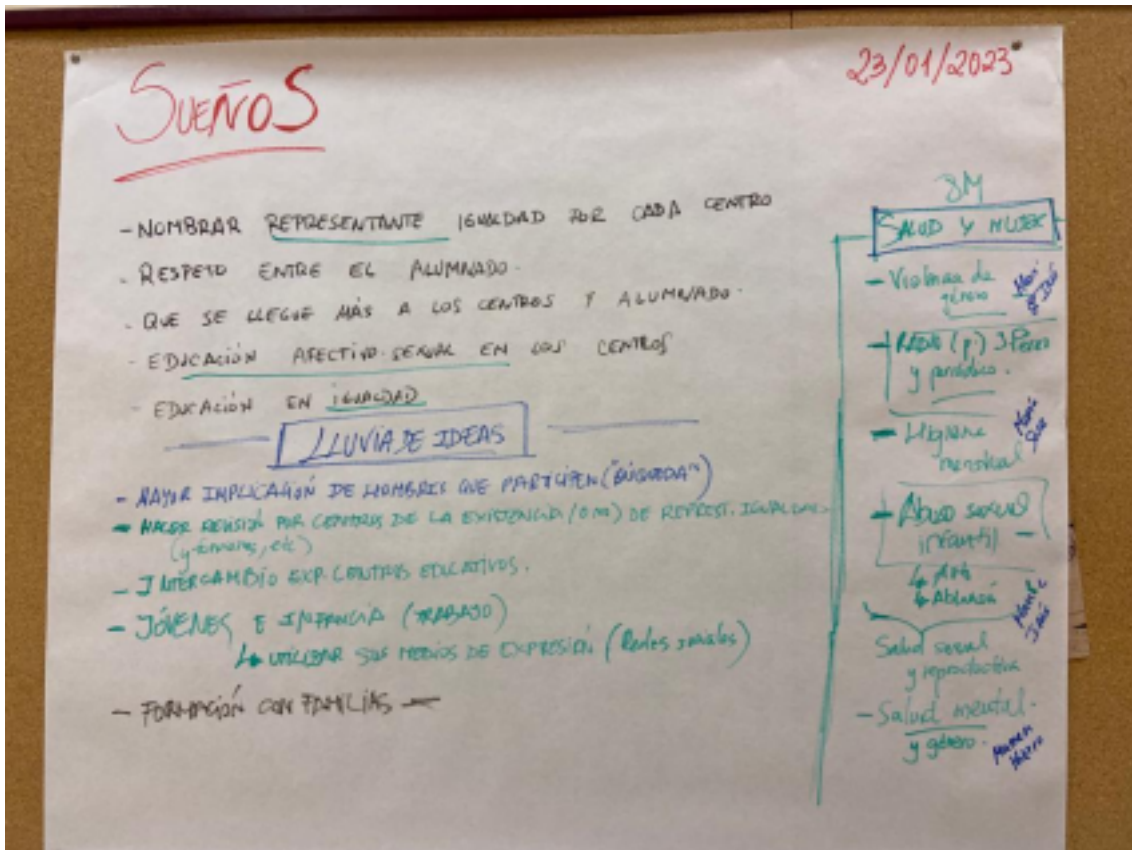 SUEÑOS
23/01/2023
- NOMBRAR REPRESENTANTE IGUALDAD POR CADA CENTRO
- RESPETO ENTRE EL ALUMNADO.
- QUE SE LLEGUE MÁS A LOS CENTROS Y ALUMNADO.
- EDUCACIÓN AFECTIVO-SEXUAL EN LOS CENTROS
- EDUCACIÓN EN IGUALDAD
LLUVIA DE IDEAS
- MAYOR IMPLICACIÓN DE HOMBRES QUE PARTICIPEN ("BÚSQUEDA")
- HACER REVISIÓN POR CENTROS DE LA EXISTENCIA (O NO) DE REPREST. IGUALDAD.
- INTERCAMBIO EXP. CENTROS EDUCATIVOS.
- JÓVENES E INFANCIA (TRABAJO)
↳ UTILIZAR SUS MEDIOS DE EXPRESIÓN (Redes sociales)
- FORMACIÓN CON FAMILIAS -
8M
SALUD Y MUJER
- Violencia de
género
- RADIO (p.)
y periódico.
- Higiene
menstrual
- Abuso sexual
infantil -
↳ Ablación
Salud sexual
y reproductiva
- Salud mental.
y género.